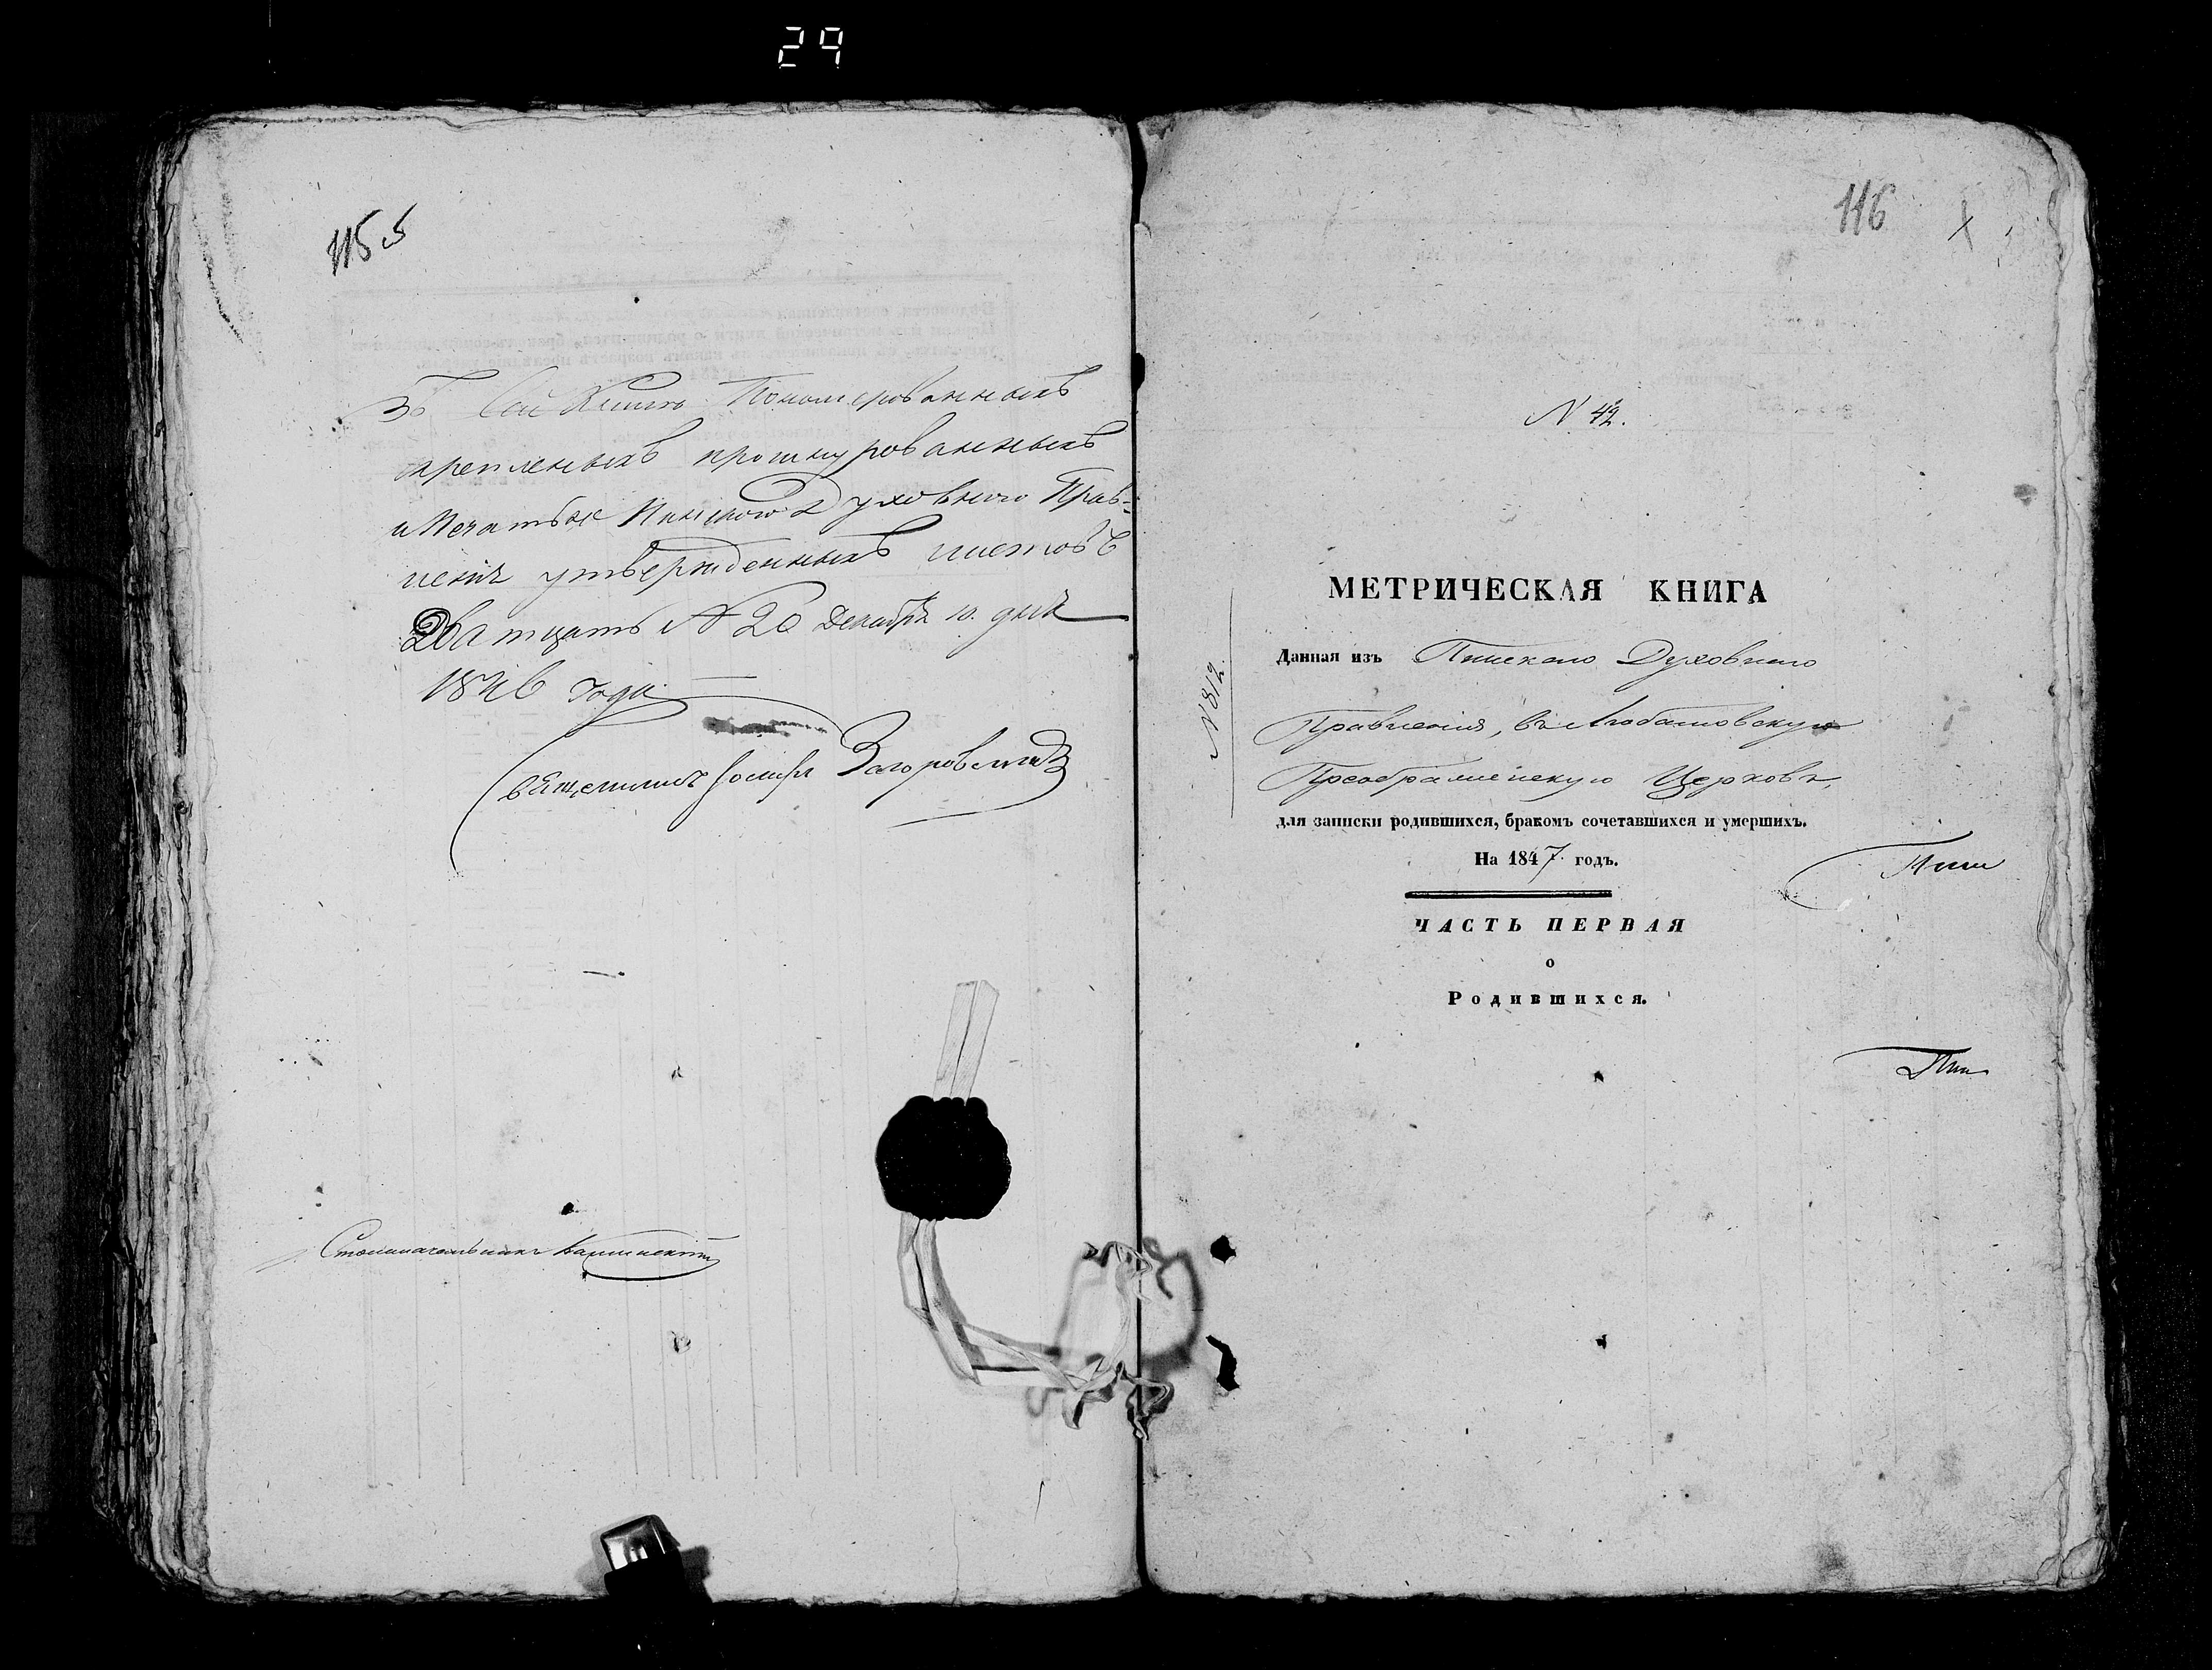 29
115
Въ Сей Книгѣ Пономерованныхъ
скрепленыхъ прошнурованныхъ
и Печатью Пинскаго Духовного Прав-
ленія утвержденныхъ листовъ
Дватцать N 20 Декабря 10. дня
1846 года
Священникъ Іосифъ
Столоначальникъ
116
N 42.
N 812.
МЕТРИЧЕСКАЯ КНИГА
Данная изъ Пинскаго Духовнаго
Правленія, въ Любашовскую
Преображенскую Церковь,
для записки родившихся, бракомъ сочетавшихся и умершихъ.
На 1847. годъ.
ЧАСТЬ ПЕРВАЯ
о
Родившихся.